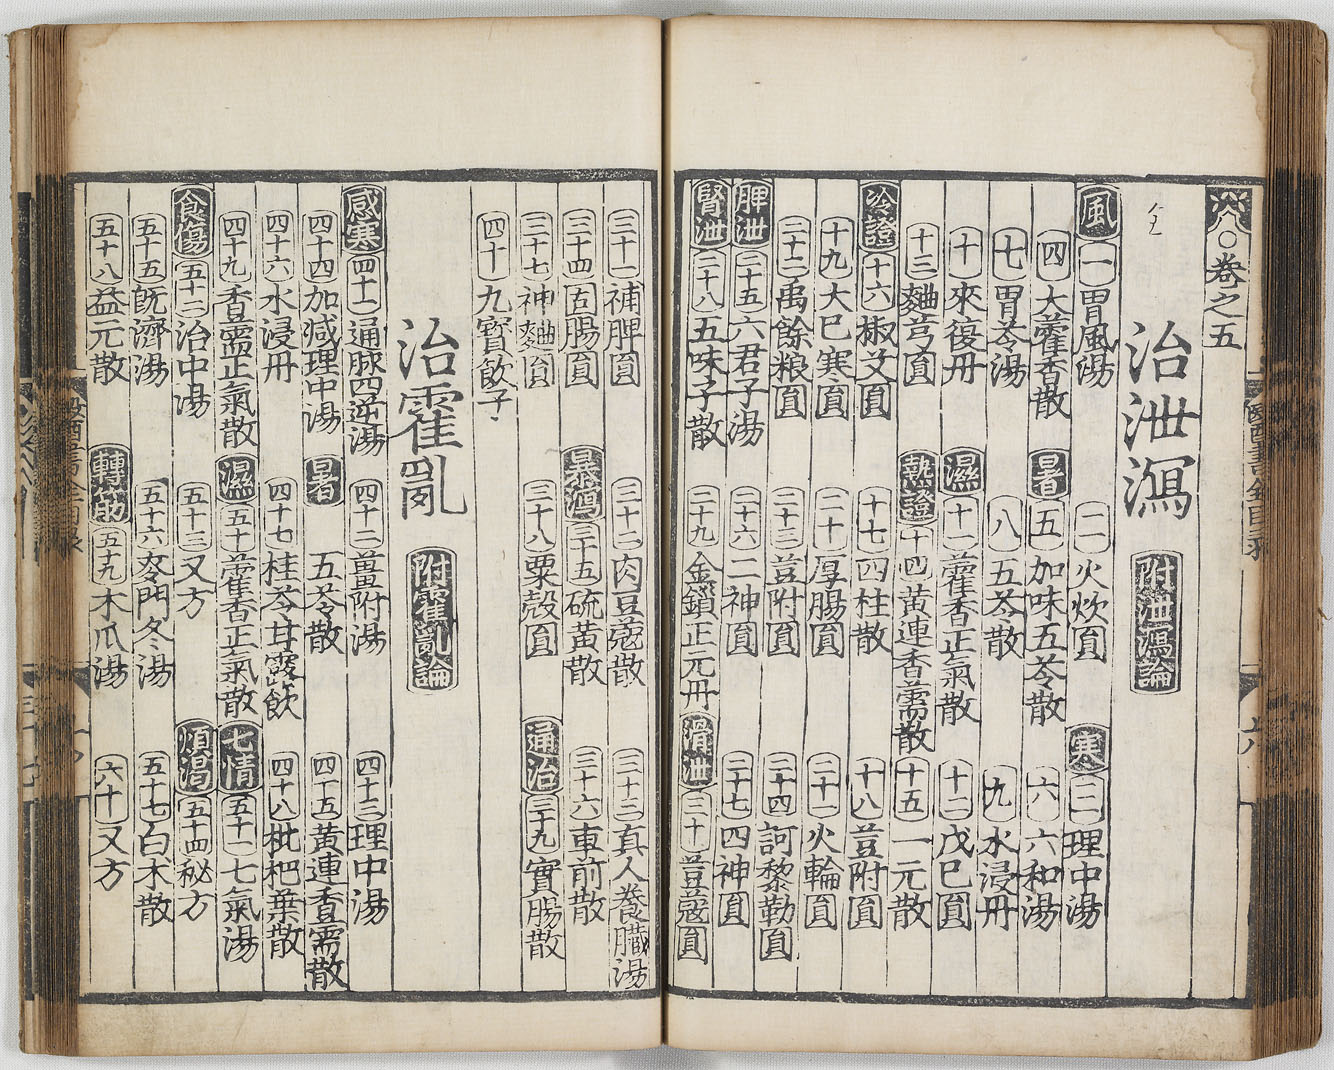 卷之五
治泄瀉 附泄瀉論
風 一 胃風湯 二 火炊圓 寒 三 理中湯
四 大藿香散 暑 五 加味五苓散 六 六和湯
七 胃苓湯 八 五苓散 九 水浸丹
十 來復丹 濕 十一 藿香正氣散 十二 戊己圓
十三 麯芎圓 熱證 十四 黃連香薷散 十五 一元散
冷證 十六 椒艾圓 十七 四柱散 十八 荳附圓
十九 大巳寒圓 二十 厚腸圓 二十一 火輪圓
二十二 禹餘粮圓 二十三 荳附圓 二十四 訶黎勒圓
脾泄 二十五 六君子湯 二十六 二神圓 二十七 四神圓
腎泄 二十八 五味子散 二十九 金鎖正元丹 滑泄 三十 荳蔻圓
三十一 補脾圓 三十二 肉豆蔻散 三十三 真人養臟湯
三十四 固腸圓 暴瀉 三十五 硫黃散 三十六 車前散
三十七 神麯圓 三十八 粟殼圓 通治 三十九 實腸散
四十 九寶飲子
治霍亂 附霍亂論
感寒 四十一 通脉四逆湯 四十二 薑附湯 四十三 理中湯
四十四 加減理中湯 暑 五苓散 四十五 黃連香薷散
四十六 水浸丹 四十七 桂苓甘露飲 四十八 枇杷葉散
四十九 香薷正氣散 濕 五十 藿香正氣散 七情 五十一 七氣湯
食傷 五十二 治中湯 五十三 又方 煩渴 五十四 秘方
五十五 旣濟湯 五十六 麥門冬湯 五十七 白朮散
五十八 益元散 轉筋 五十九 木瓜湯 六十 又方